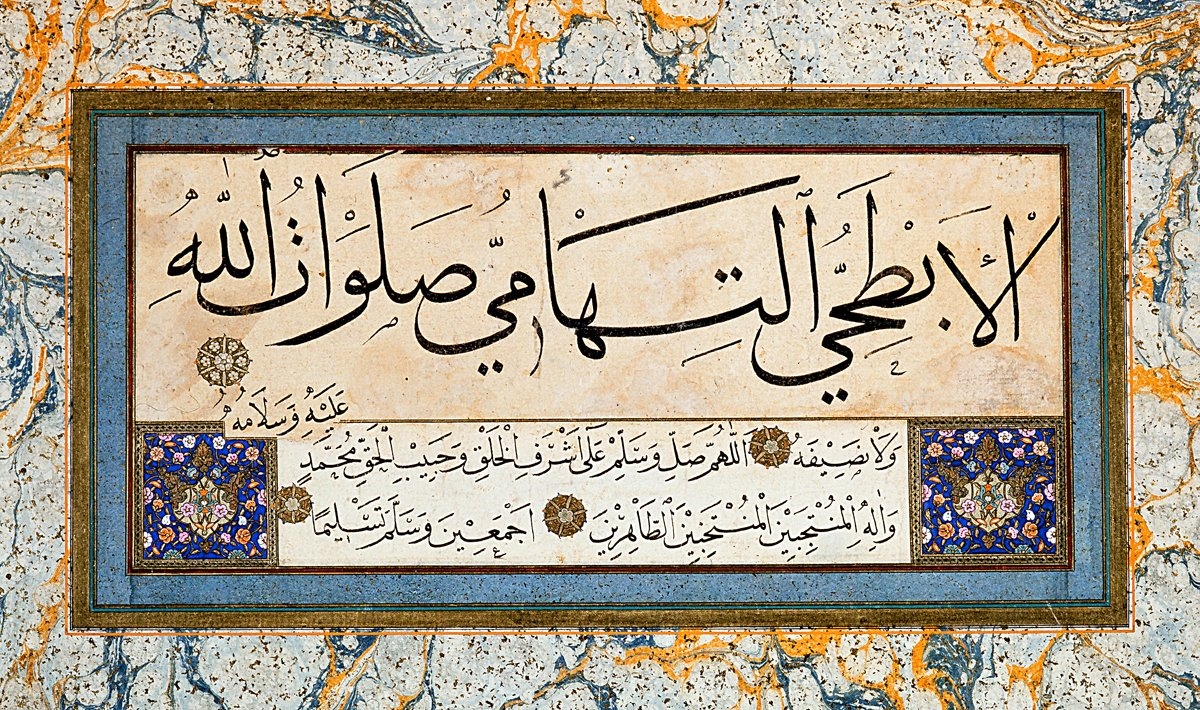 اَلْاَبْطَحِيِّ اَلتِّهَامِيِّ صَلَوَاتُ اللّٰهِ
عَلَيْهِ وَسَلَامُهُ
وَلَا نَصِيفَهُ اَللّٰهُمَّ صَلِّ وَسَلِّمْ عَلٰى اَشْرَفِ الْخَلْقِ وَحَبِيبِ الْحَقِّ مُحَمَّدٍ
وَاٰلِهِ الْمُنْتَجَبِيْنَ الْمُنْتَخَبِيْنَ الطَّاهِرِيْنَ اَجْمَعِيْنَ وَسَلَّمَ تَسْلِيمًا